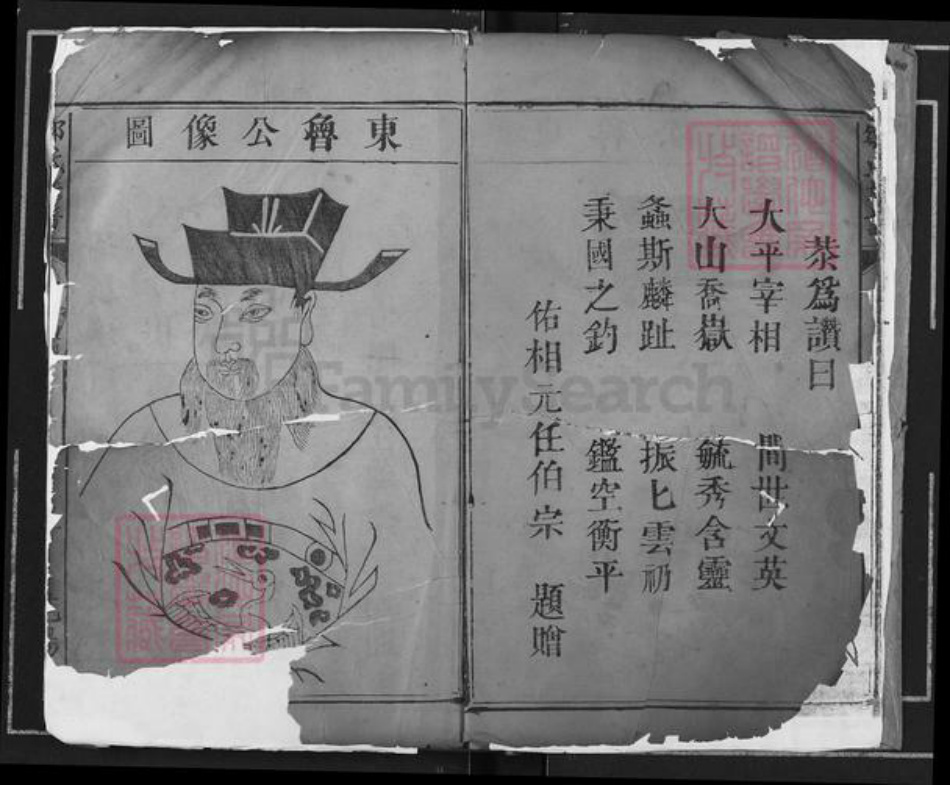 恭為讚曰
大平宰相 間世文英
大山喬嶽 毓秀含靈
螽斯麟趾 振匕雲礽
秉國之鈞 鑑空衡平
佑相元任伯宗 題贈
東魯公像圖
FamilySearch